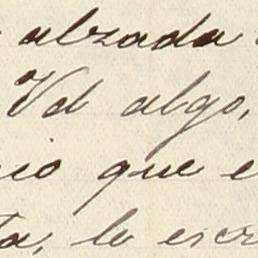 alzada
Vd algo,
cio que e
ta, le escr